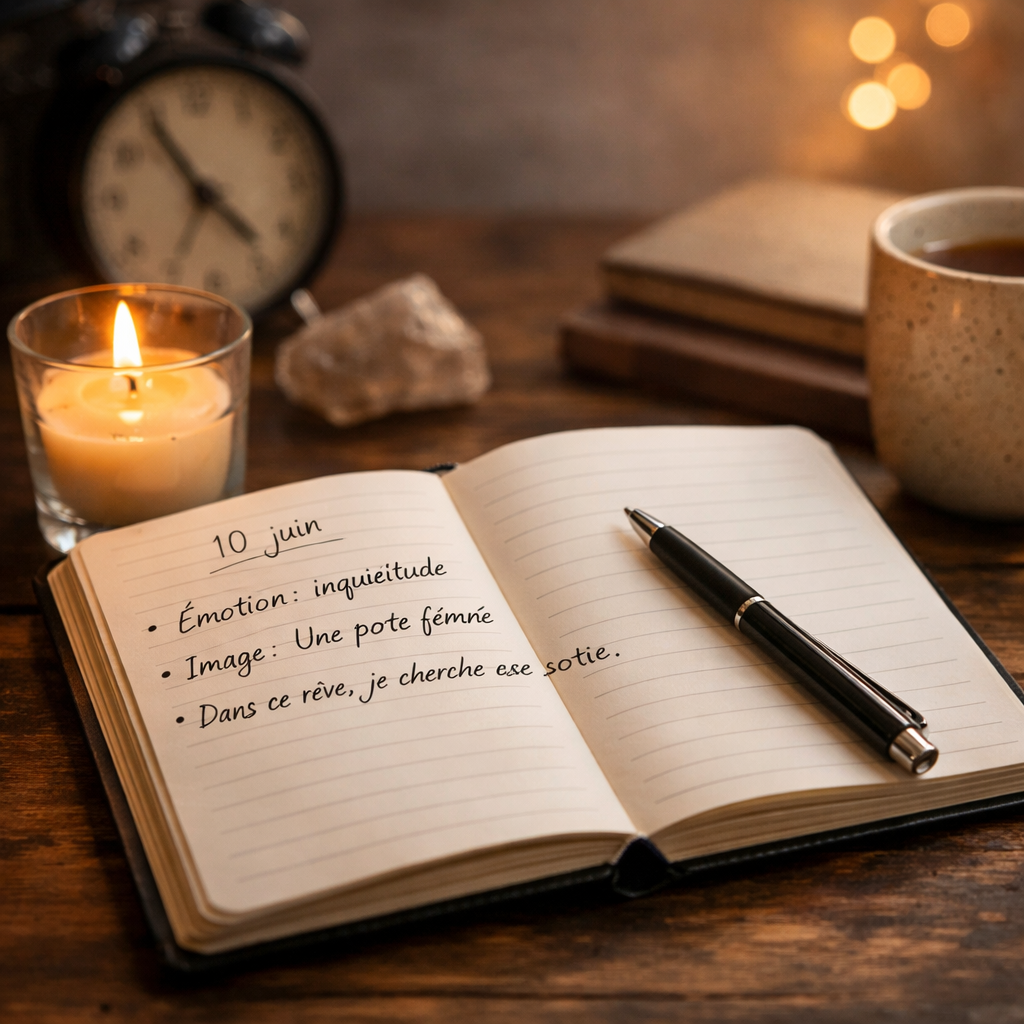 10 juin
• Émotion: inquieitude
• Image: Une pote fémne
• Dans ce rêve, je cherche ese sotie.